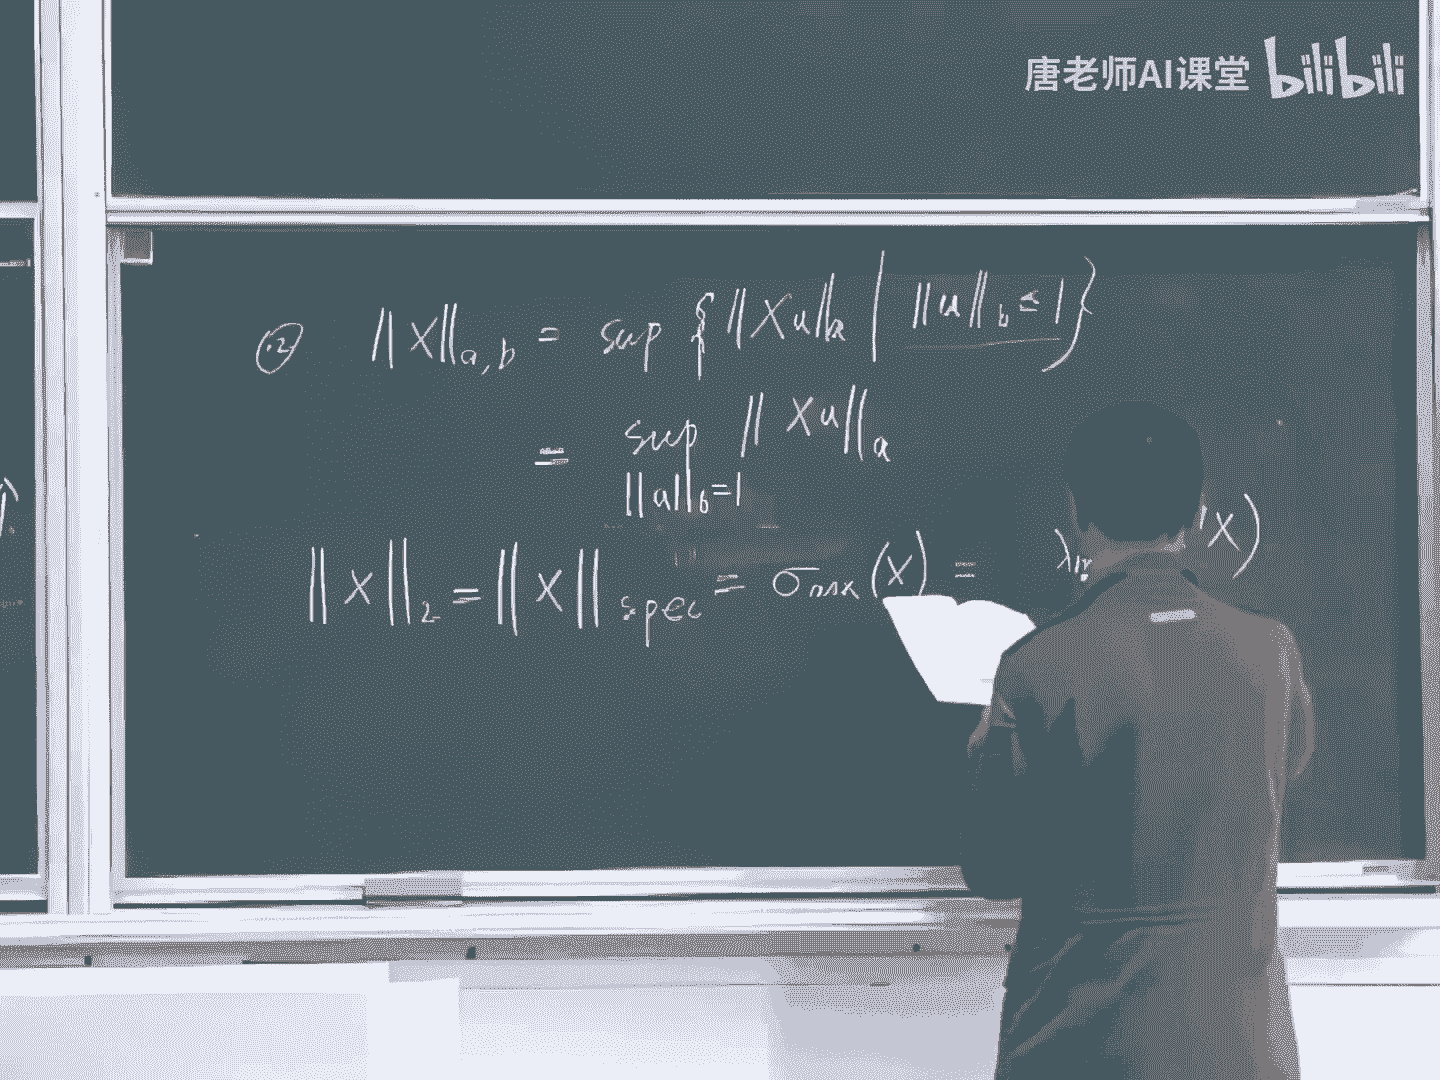 唐老师AI课堂 bilibili
② ||X||_{a,b} = sup { ||Xu||_a | ||u||_b ≤ 1 }
= sup ||Xu||_a
||u||_b=1
||X||_2 = ||X||_spec = σ_max(X) = λ X)